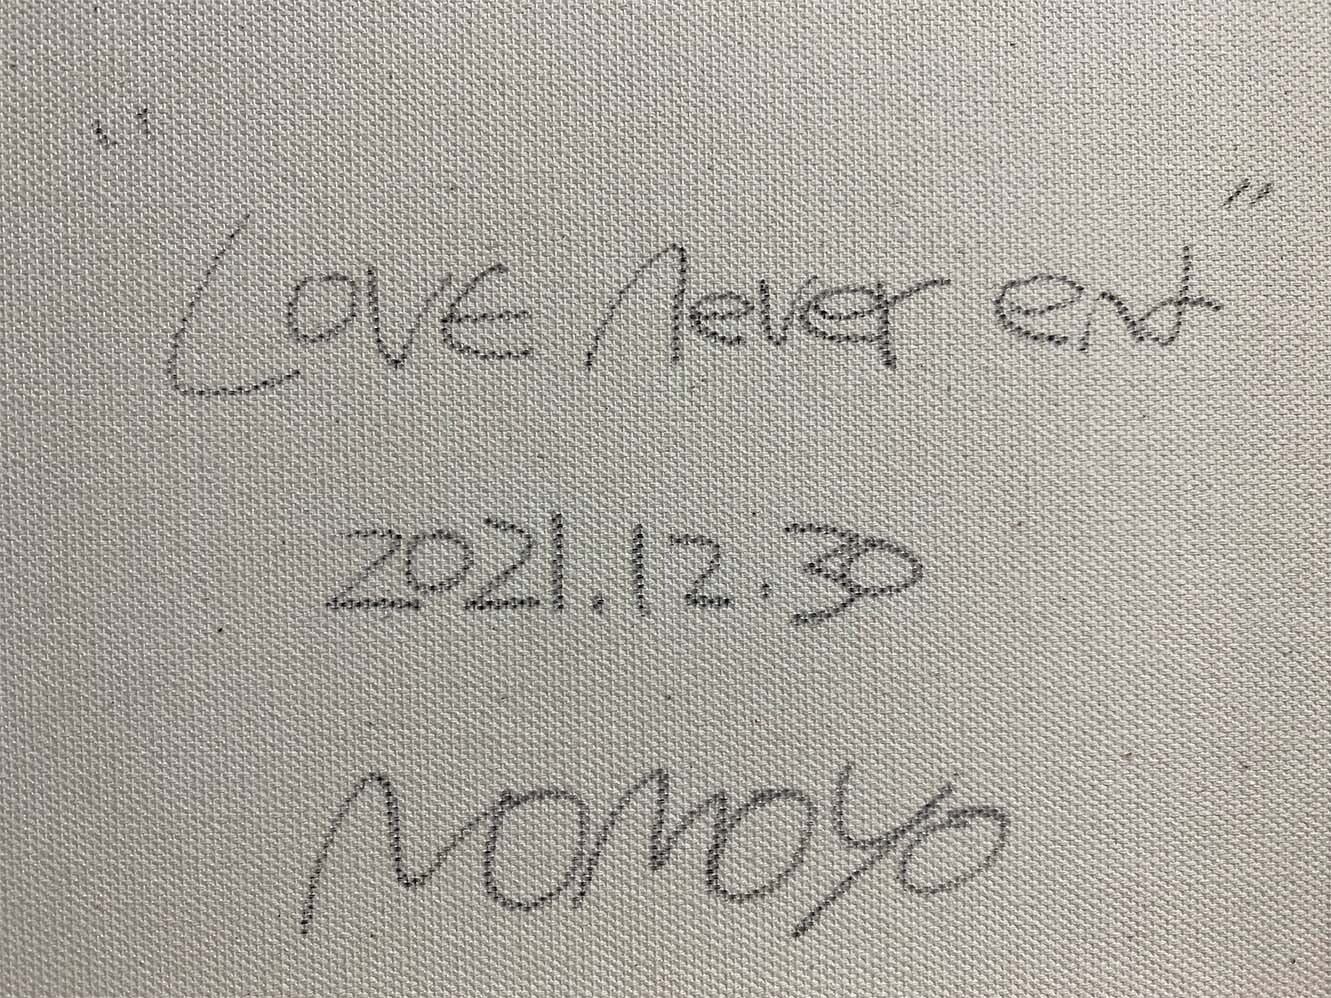 "Love never end"
2021.12.30
NOMOYO